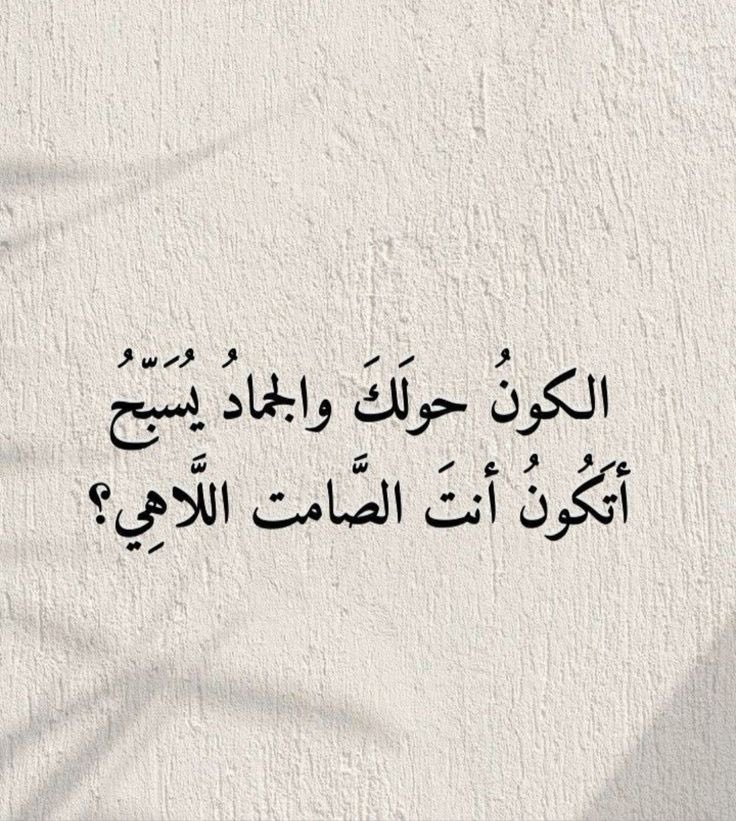 الكونُ حولَكَ والجمادُ يُسَبّحُ
أتَكُونُ أنتَ الصَّامت اللَّاهِي؟